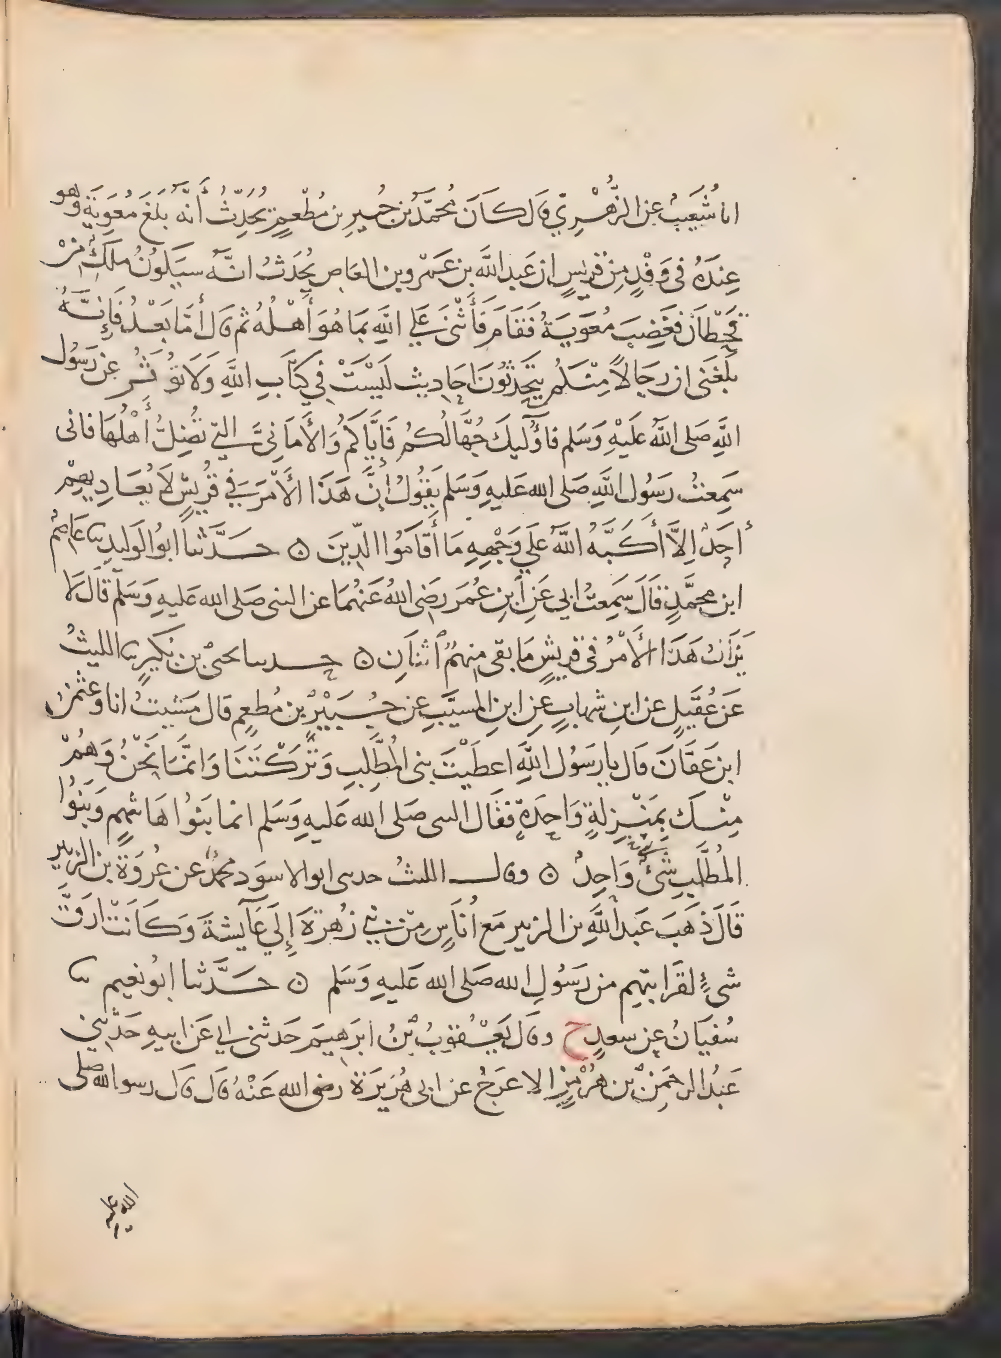 انا شُعَيبُ عن الزُّهْرِيّ قَال كَانَ مُحمَّدُ بْن جُبيرِ بن مُطْعِمٍ يُحَدِّثُ أَنَّهُ بَلَغَ مُعَوِيَةَ وَهو
عِندَهُ فى وَفْدٍ مِنْ قُرَيْشٍ ان عَبد اللَّه بن عَمْرِو بن العَاصِ يُحَدِّثُ انَّهُ سَيَكُونُ مَلِكٌ مِنْ
قَحْطَانَ فغَضِبَ مُعَوِيَةُ فَقَامَ فَأَثْنَى عَلَى اللَّهِ بِمَا هُوَ أَهْلُهُ ثم قَال أَمَّا بَعْدُ فَإِنَّهُ
بَلَغَنى ان رِجَالاً مِنْكُم يَتَحَدَّثُونَ احَادِيث لَيْسَتْ فِي كِتَابِ اللَّهِ وَلَا تُؤْثَرُ عن رَسُول
اللَّهِ صَلى اللَّهُ عَلَيْهِ وَسَلم فأُولَئِكَ جُهَّالُكُمْ فَإِيَّاكُم وَالأَمَانِيَّ التي تُضِلُّ أَهْلَهَا فانى
سَمِعتُ رَسُول اللَّهِ صَلى الله عَليهِ وَسَلم يَقُولُ إِنَّ هَذَا الأَمْرَ فِي قُرَيْشٍ لَا يُعَادِيهِمْ
أَحَدٌ إِلاَّ أَكَبَّهُ اللَّهُ عَلَى وَجْهِهِ مَا أَقَامُوا الدِّينَ ۞ حَدَّثنا ابوالوَليدِ ثنا عَاصِمُ
ابن محمَّدٍ قَالَ سَمِعتُ ابى عَنِ ابنِ عُمَرَ رَضى اللهُ عَنهُمَا عن النبى صَلى الله عَليهِ وَسَلم قَالَ لَا
يَزَالُ هَذَا الأَمْرُ فى قُرَيشٍ مَا بقى مِنهُمُ اثنَانِ ۞ حدثنا يحيى بن بُكَيرٍ ثنا الليثُ
عَن عُقَيلٍ عن ابنِ شِهابٍ عن ابنِ المسَيَّبِ عن جُبَيْرِ بْنِ مُطعِمٍ قال مَشَيتُ انا وعثمن
ابن عَفَّانَ فَقَال يا رَسُول اللَّهِ اعطَيْتَ بنى المُطَّلِبِ وَتَرَكْتَنَا وَانمَّا نَحْنُ وَهُمْ
مِنْكَ بِمَنْزِلةٍ وَاحِدَةٍ فقَال النبى صَلى الله عَليهِ وَسَلم انما بَنُوا هَاشِمٍ وَبَنُوا
المُطَّلِبِ شَىْءٌ وَاحِدٌ ۞ وقال الليثُ حدثنى ابوالاسوَد محمدٌ عن عُروَةَ بن الزبير
قَالَ ذَهَبَ عَبدُ اللَّهِ بن الزبير مَع أُنَاسٍ مِنْ بَنِي زُهْرَةَ إِلَى عَآيشةَ وَكَانَتْ ارَقَّ
شىءٍ لِقَرَابتِهم من رَسُولِ الله صَلى الله عَليهِ وَسَلم ۞ حَدَّثنا ابُونعَيم ثنا
سُفيَانُ عن سعدٍ ح وقال يَعْقُوبُ بْنُ ابرَهيمَ حَدثنى ابى عَن ابيهِ حَدَّثَنِي
عَبدُ الرحمَنِ بْن هُرْمُزٍ الاعرَجُ عن ابى هُرَيرَةَ رضى الله عَنْهُ قَال قَال رسول الله صلى
الله عليه